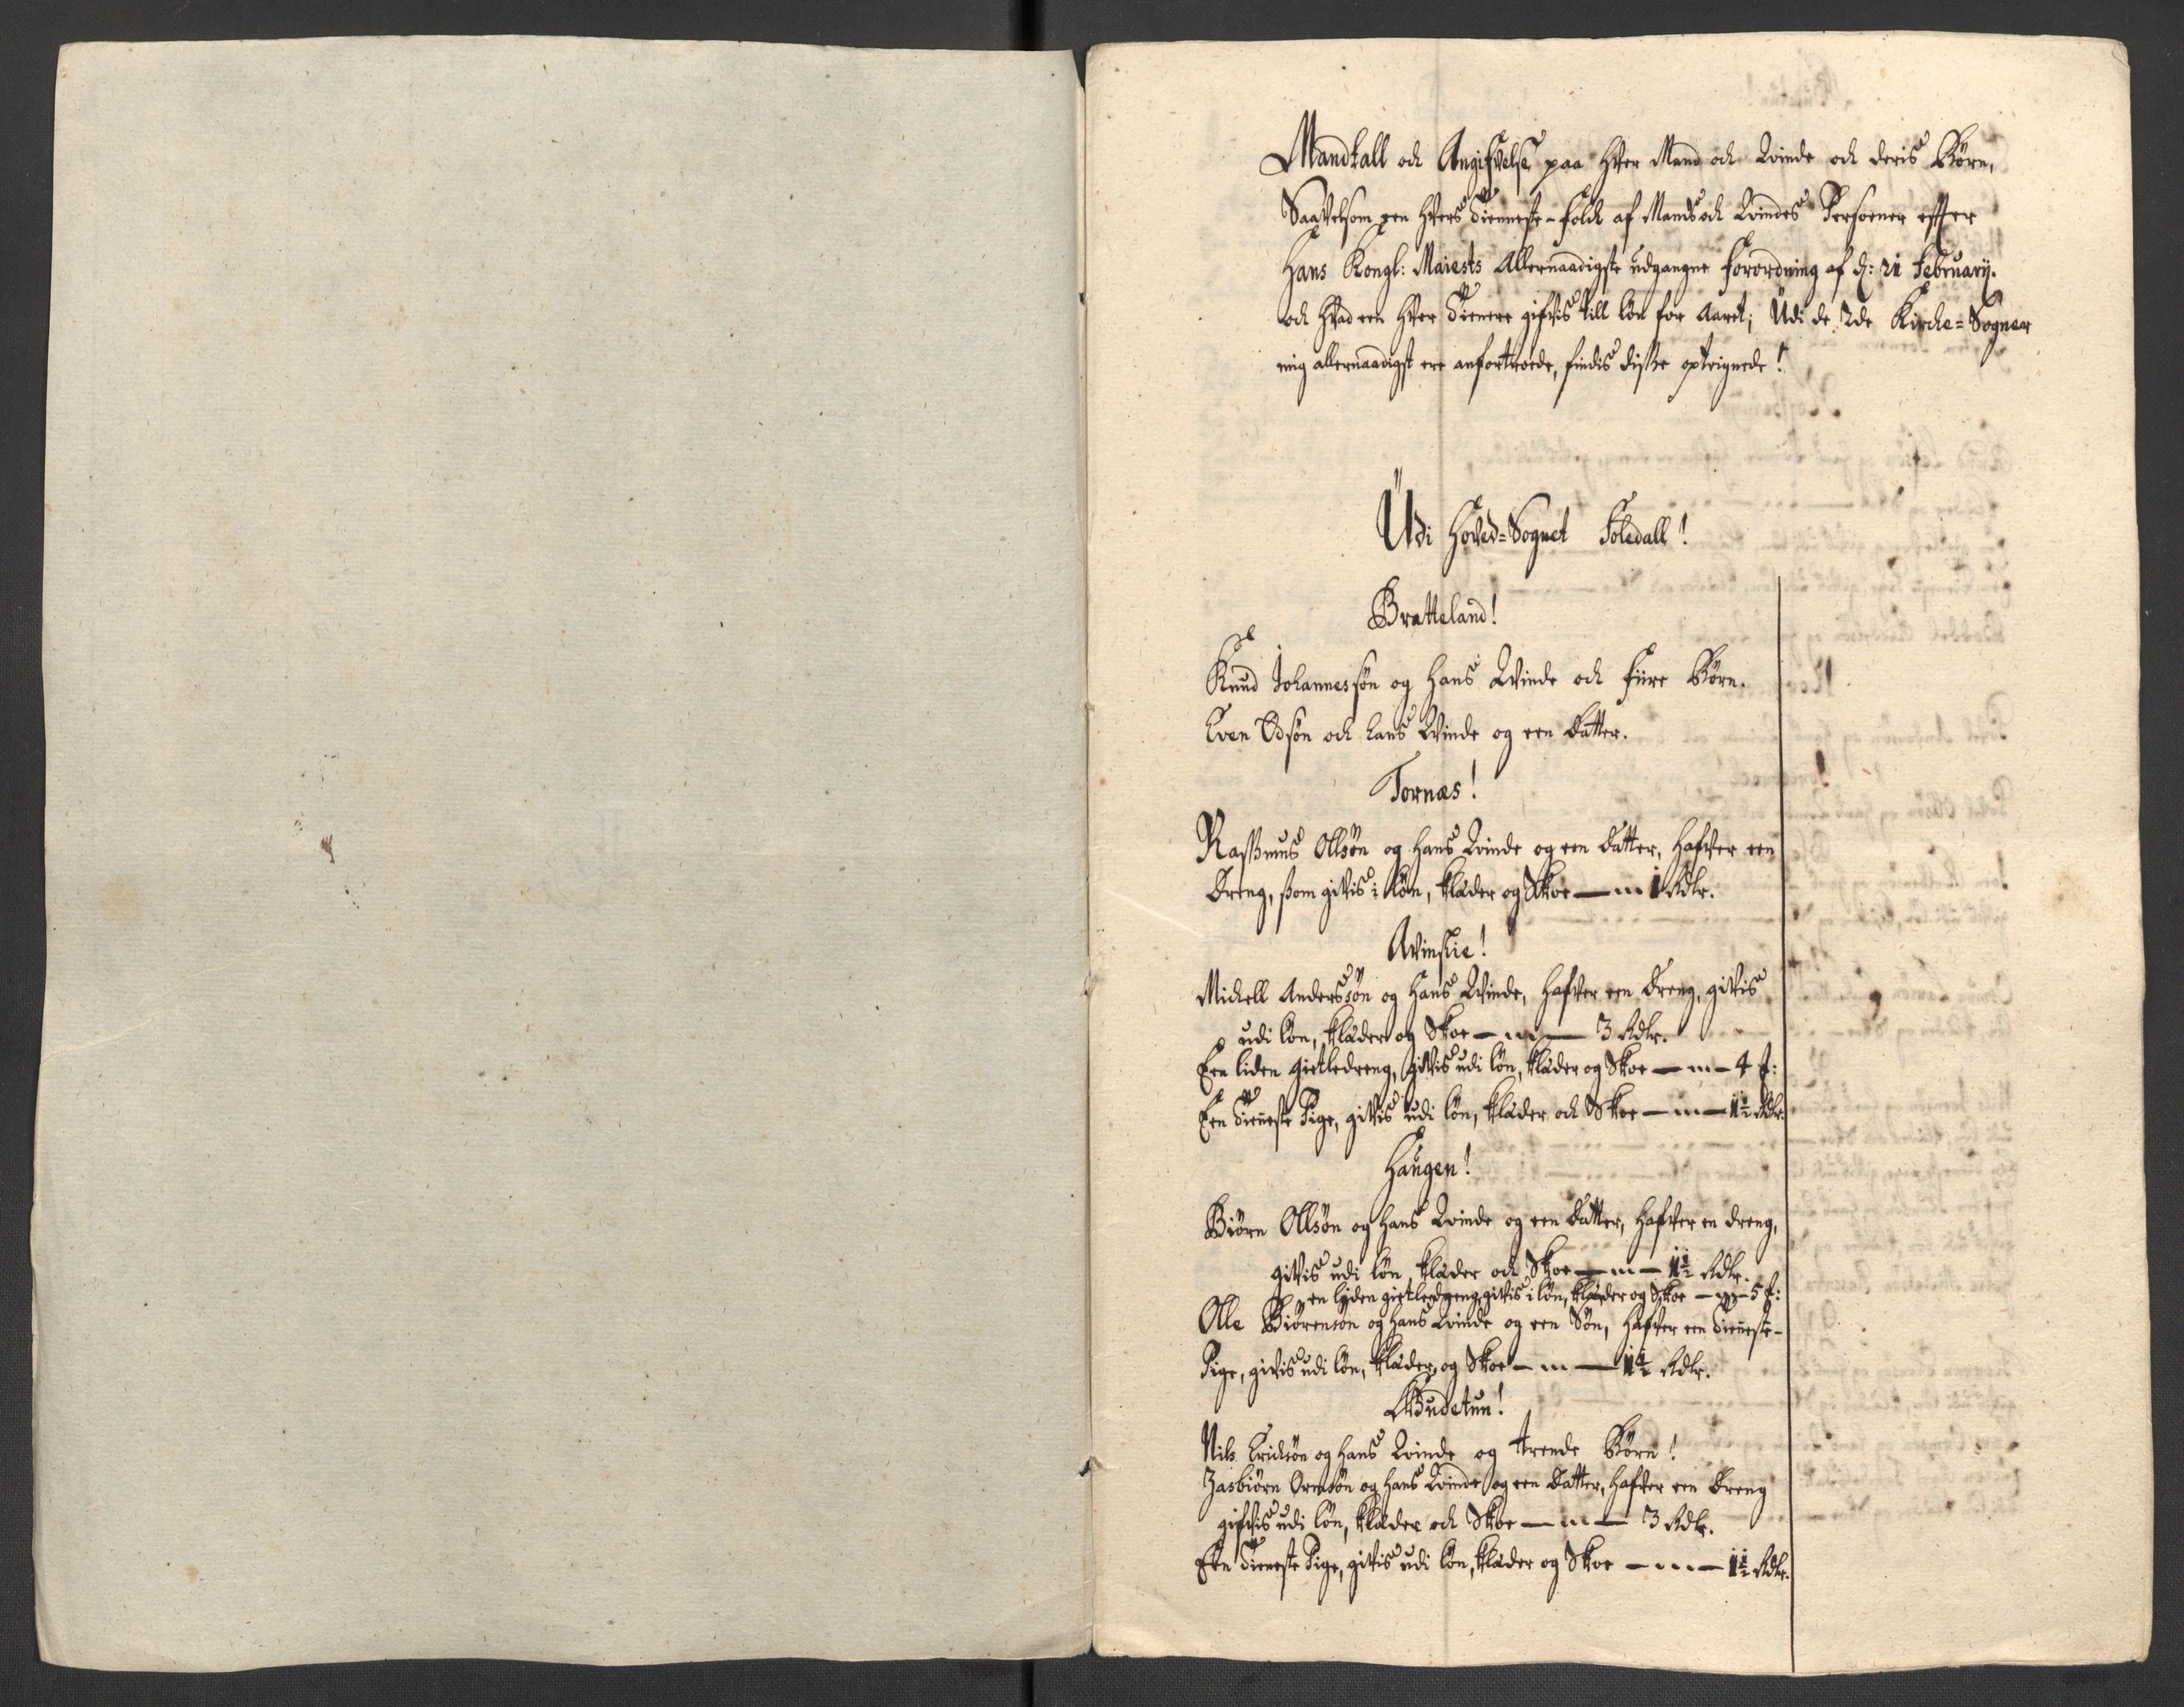 Mandtall och Angifvelse paa hver Mand och Qvinde och deris Børn,
Saavelsom een hvers Tienneste-Folck af Mands och Qvindes Persoener effter
Hans Kongl: Maiests Allernaadigste udgangne Forordning af d: 21 Februarij.
och hvad een hver Tienere gifvis till løn for Aaret; Udi de 2de Kirche-Sogner
mig allernaadigst ere anfortroede, findis disse opteignede!
Udi Hoved-Sognet Søledall!
Bratteland!
Knud Johannessøn og hans Qvinde och fiire Børn.
Sven Odsøn och hans Qvinde og een Datter.
Tornæs!
Rassmus Ollsøn og hans Qvinde og een Datter, hafver een
Dreng, som givis i løn, klæder og Skoe — 1 Rdlr.
Michell Anderssøn og hans Qvinde, hafver een Dreng, givis
udi løn, klæder og Skoe — 3 Rdlr.
Een liden gietledreng, givis udi løn, klæder og Skoe — 4
Een Tieneste Pige, givis udi løn, klæder och Skoe — 1½ Rdlr.
Haugen!
Biørn Ollsøn og hans Qvinde og een Datter, hafver en dreng,
givis udi løn, klæder och Skoe — 1½ Rdlr.
en lyden gietledreng givis i løn, klæder og Skoe — 5
Olle Biørensøn og hans Qvinde og een Søn, hafver een Tieneste-
Pige, givis udi løn, klæder og Skoe — 1½ Rdlr.
Nils Erichsøn og hans Qvinde og trende Børn!
Zasbiørn Ormsøn og hans Qvinde og een Datter, hafver een Dreng
gifvis udi løn, klæder och Skoe — 3 Rdlr.
Een Tieneste Pige, givis udi løn, klæder og Skoe — 1½ Rdlr.